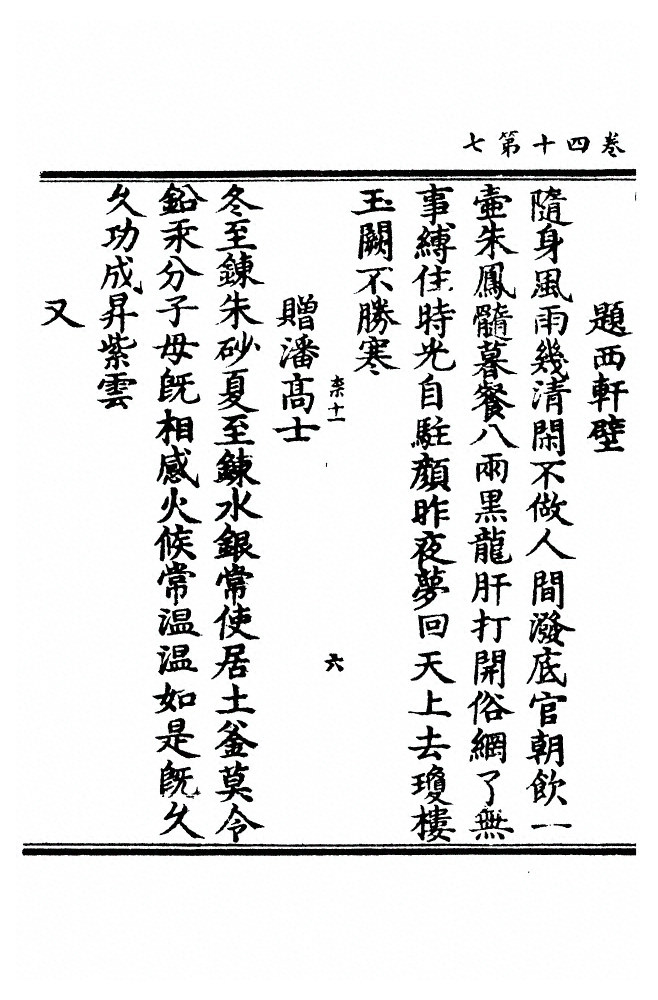 卷四十第七
題西軒壁
隨身風雨幾清閑不做人間潑底官朝飲一
壺朱鳳髓暮餐八兩黑龍肝打開俗網了無
事縛住時光自駐顏昨夜夢回天上去瓊樓
玉闕不勝寒
柰十一
六
贈潘高士
冬至鍊朱砂夏至鍊水銀常使居土釜莫令
鉛汞分子母旣相感火候常温温如是旣久
久功成昇紫雲
又